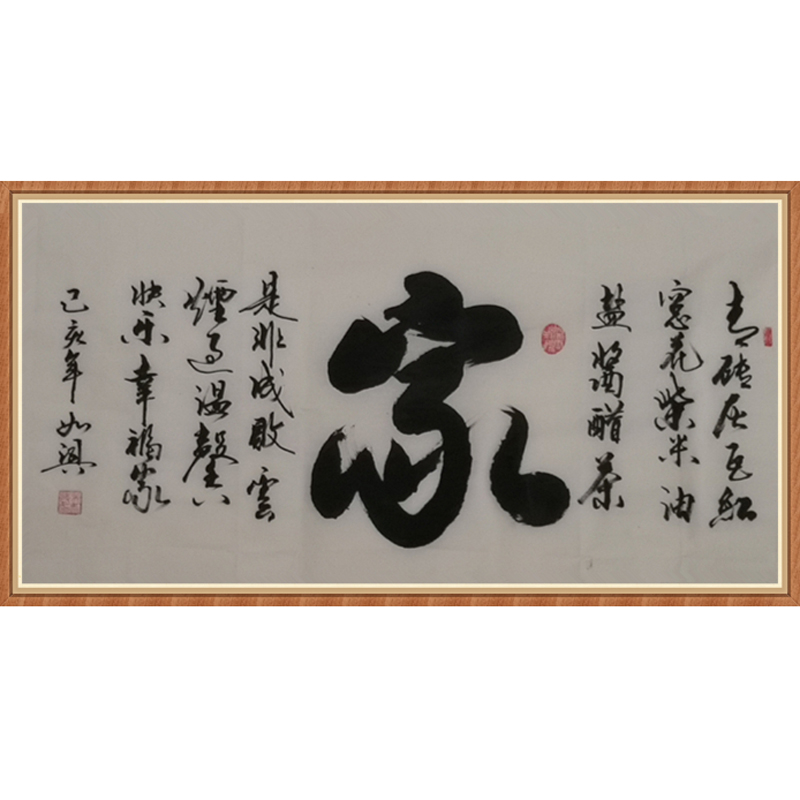 青砖灰瓦红
窓花柴米油
盐醬醋茶
家
是非成败雲
煙过温馨
快乐幸福家
己亥年如興